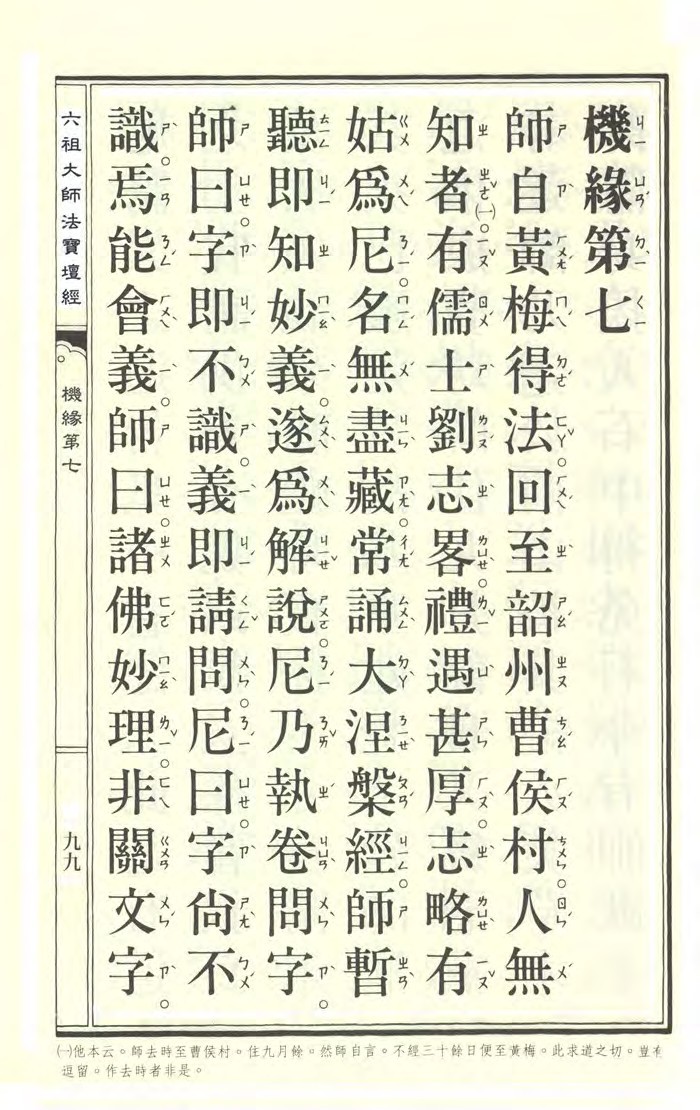 機緣第七
師自黃梅得法。回至韶州曹侯村。人無
知者㈠。有儒士劉志畧。禮遇甚厚。志略有
姑爲尼。名無盡藏。常誦大涅槃經。師暫
聽。即知妙義。遂爲解說。尼乃執卷問字。
師曰。字即不識。義即請問。尼曰。字尚不
識。焉能會義。師曰。諸佛妙理。非關文字。
六祖大師法寶壇經
機緣第七
九九
㈠他本云。師去時至曹侯村。住九月餘。然師自言。不經三十餘日便至黃梅。此求道之切。豈有
逗留。作去時者非是。